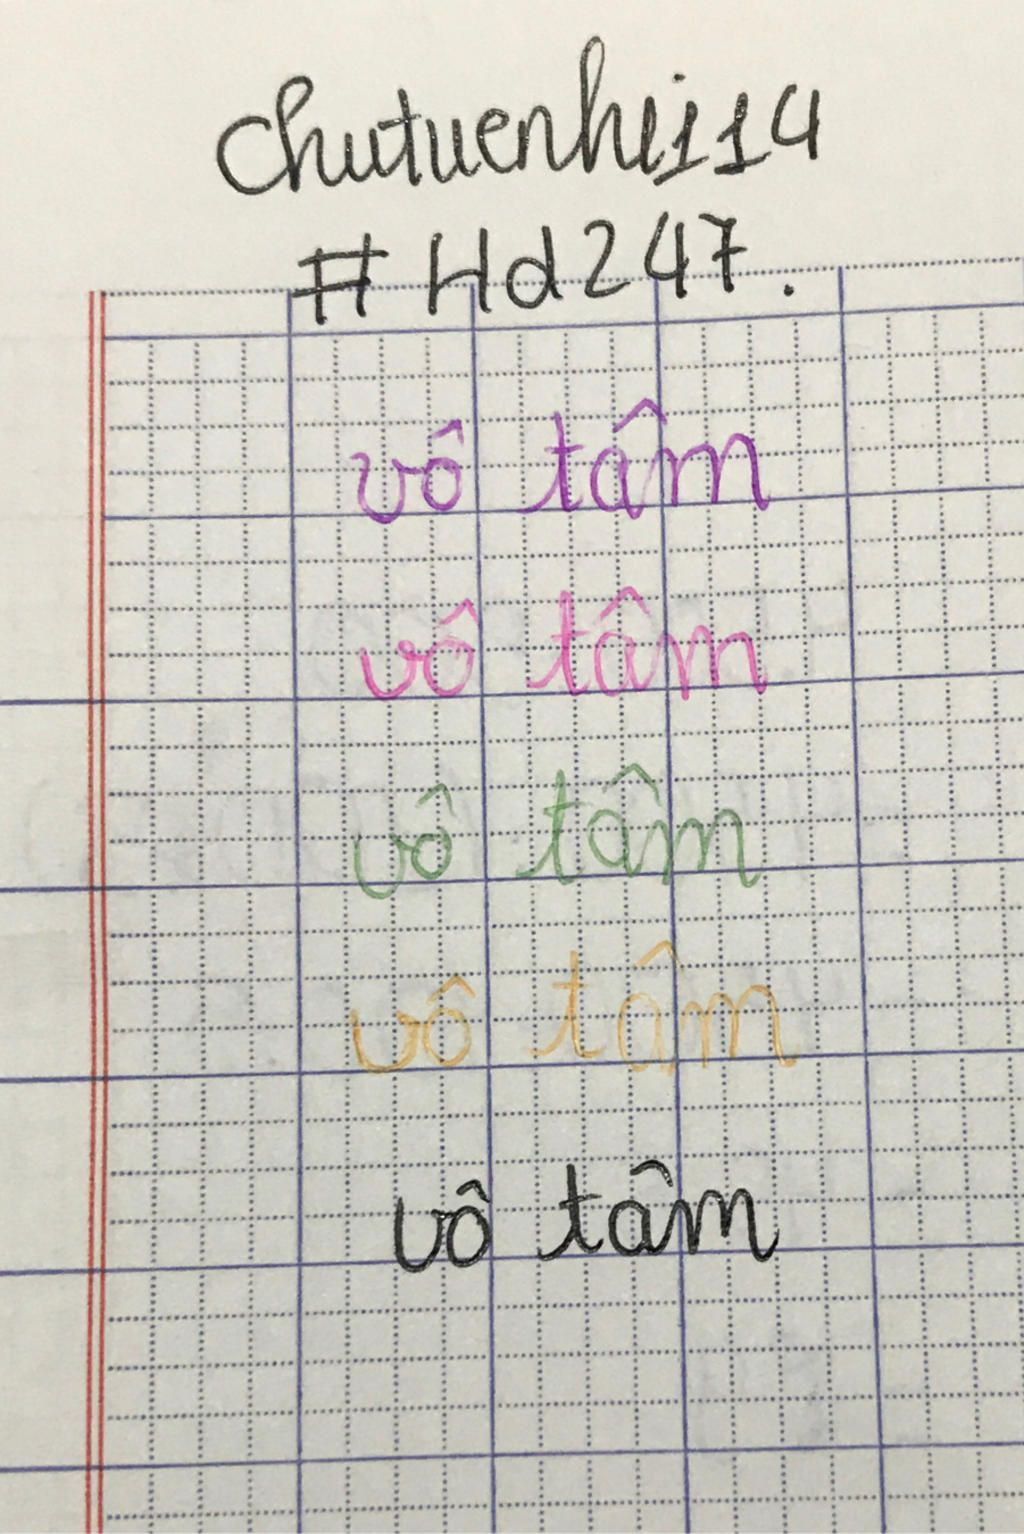 chutuenhi114
#Hd247.
vô tâm
vô tâm
vô tâm
vô tâm
vô tâm